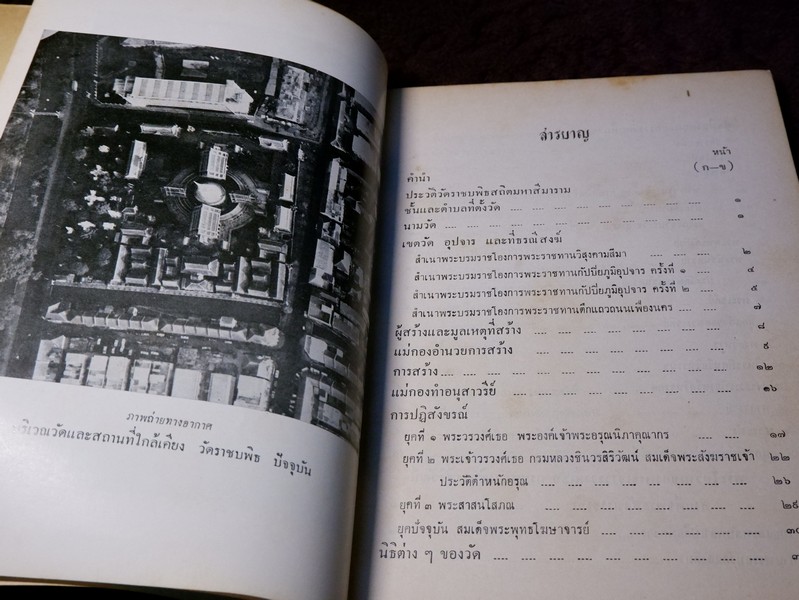 ภาพถ่ายทางอากาศ
บริเวณวัดและสถานที่ใกล้เคียง วัดราชบพิธ ปัจจุบัน
สารบาญ
หน้า
คำนำ (ก—ข)
ประวัติวัดราชบพิธสถิตมหาสีมาราม
ชั้นและตำบลที่ตั้งวัด .... .... .... .... .... .... .... .... ๑
นามวัด .... .... .... .... .... .... .... .... .... .... ๑
เขตวัด อุปจาร และที่ธรณีสงฆ์
สำเนาพระบรมราชโองการพระราชทานวิสุงคามสีมา .... .... ๒
สำเนาพระบรมราชโองการพระราชทานกัปปิยภูมิอุปจาร ครั้งที่ ๑ .... ๔
สำเนาพระบรมราชโองการพระราชทานกัปปิยภูมิอุปจาร ครั้งที่ ๒ .... ๕
สำเนาพระบรมราชโองการพระราชทานตึกแถวถนนเฟื่องนคร .... ๗
ผู้สร้างและมูลเหตุที่สร้าง .... .... .... .... .... .... .... ๘
แม่กองอำนวยการสร้าง .... .... .... .... .... .... .... ๙
การสร้าง .... .... .... .... .... .... .... .... .... .... ๑๒
แม่กองทำอนุสาวรีย์ .... .... .... .... .... .... .... ๑๖
การปฏิสังขรณ์
ยุคที่ ๑ พระวรวงศ์เธอ พระองค์เจ้าพระอรุณนิภาคุณากร .... .... ๑๗
ยุคที่ ๒ พระเจ้าวรวงศ์เธอ กรมหลวงชินวรสิริวัฒน์ สมเด็จพระสังฆราชเจ้า ๒๒
ประวัติตำหนักอรุณ .... .... .... .... .... .... ๒๖
ยุคที่ ๓ พระศาสนโสภณ .... .... .... .... .... .... .... ๒๙
ยุคปัจจุบัน สมเด็จพระพุทธโฆษาจารย์ .... .... .... .... ๓๐
พิธีต่าง ๆ ของวัด .... .... .... .... .... .... .... ๓